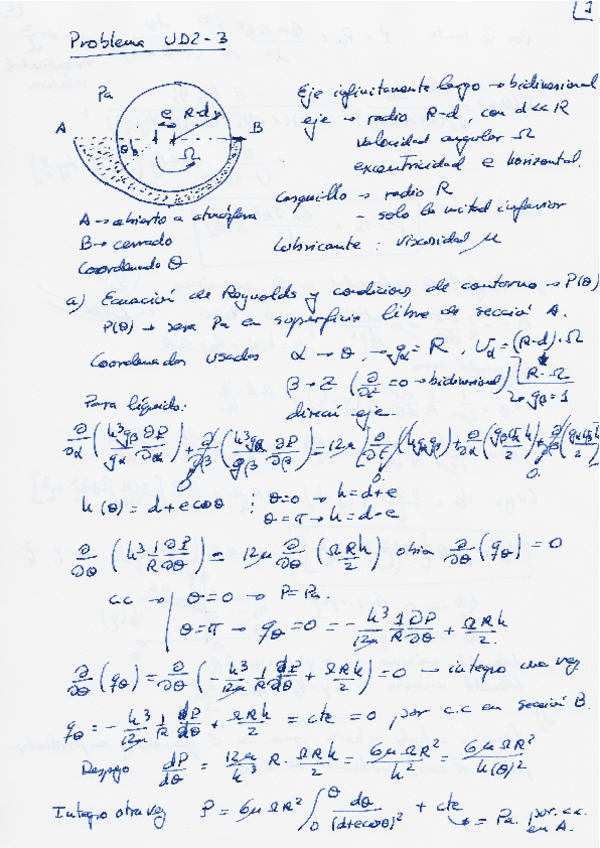 1
Problema UD2-3
Pa
e R-d
A
B
θ
Ω
Eje infinitamente largo → bidimensional
eje → radio R-d, con d<<R
velocidad angular Ω
excentricidad e horizontal.
Casquillo → radio R
- solo la mitad inferior
Lubricante: viscosidad μ
A → abierto a atmósfera
B → cerrado
Coordenada θ
a) Ecuación de Reynolds y condiciones de contorno → P(θ)
P(θ) → sera Pa en superficie libre de sección A.
Coordenadas usadas α → θ, → gα = R, Uα = (R-d)·Ω
R·Ω
β → Z (∂/∂z = 0 → bidimensional) → gβ = 1
Para líquido: direcc eje.
∂/∂α (h³gβ/gα ∂P/∂α) + ∂/∂β (h³gα/gβ ∂P/∂β) = 12μ [∂/∂t (h gα gβ) + ∂/∂α (gβ Uα h/2) + ∂/∂β
0 0 0
h(θ) = d + e cosθ ; θ=0 → h=d+e
θ=π → h=d-e
∂/∂θ (h³ 1/R ∂P/∂θ) = 12μ ∂/∂θ (ΩRh/2) ∂/∂θ (qθ) = 0
c.c → θ=0 → P=Pa.
θ=π → qθ = 0 = - h³/12μ 1/R ∂P/∂θ + ΩRh/2.
∂/∂θ (qθ) = ∂/∂θ (- h³/12μ 1/R dP/dθ + ΩRh/2) = 0 → integro una vez
qθ = - h³/12μ 1/R dP/dθ + ΩRh/2 = cte = 0, por c.c en sección B.
Despejo dP/dθ = 12μ/h³ R · ΩRh/2 = 6μΩR²/h² = 6μΩR²/h(θ)²
Integro otra vez P = 6μΩR² ∫₀^θ dθ/(d+ecosθ)² + cte
→ = Pa. por c.c.
en A.